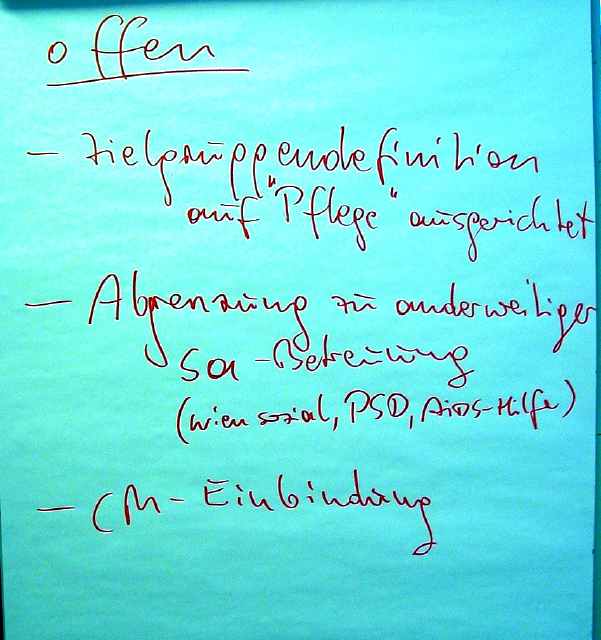 offen
- Zielgruppendefinition
auf "Pflege" ausgerichtet
- Abgrenzung zu anderweitiger
Sa-Betreuung
(wien sozial, PSD, AIDS-Hilfe)
- CM-Einbindung